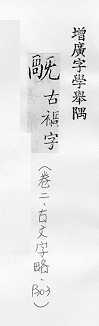 增廣字學舉隅
旤 古禍字
(卷二·古文字略·303)